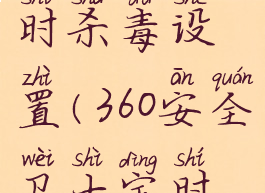 时杀毒设
zhì ān quán
置(360安全
wèi shì dìng shí